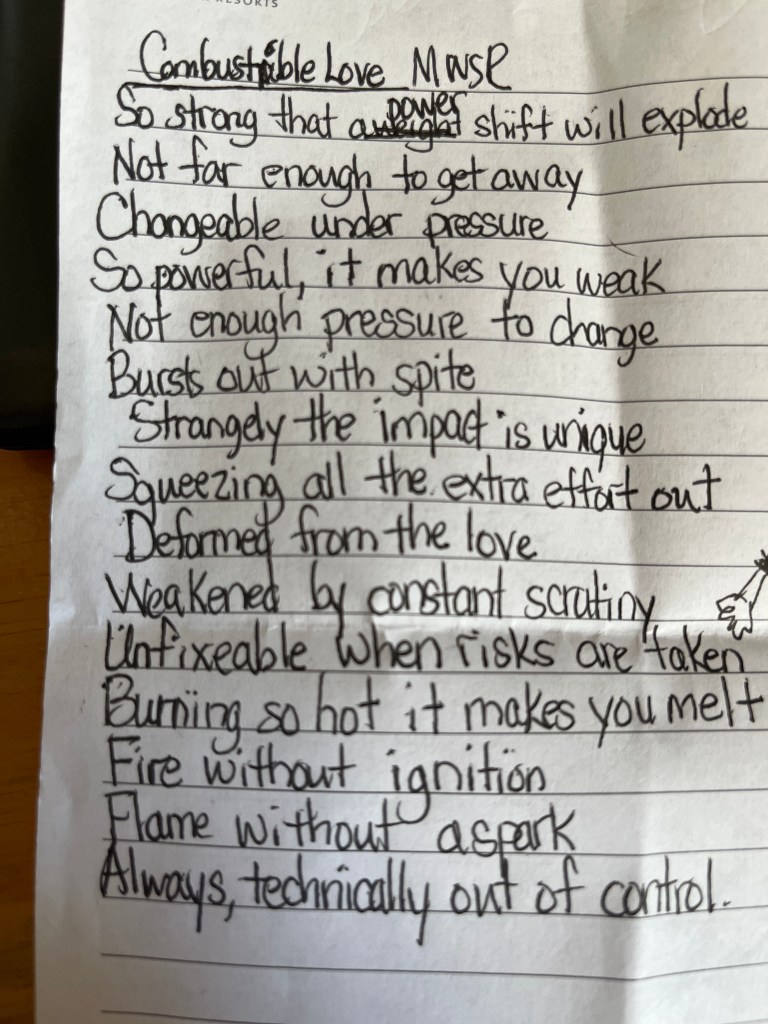 RESORTS
Combustible Love MWSP
So strong that a power shift will explode
Not far enough to get away
Changeable under pressure
So powerful, it makes you weak
Not enough pressure to change
Bursts out with spite
Strangely the impact is unique
Squeezing all the extra effort out
Deformed from the love
Weakened by constant scrutiny
Unfixeable when risks are taken
Burning so hot it makes you melt
Fire without ignition
Flame without a spark
Always, technically out of control.